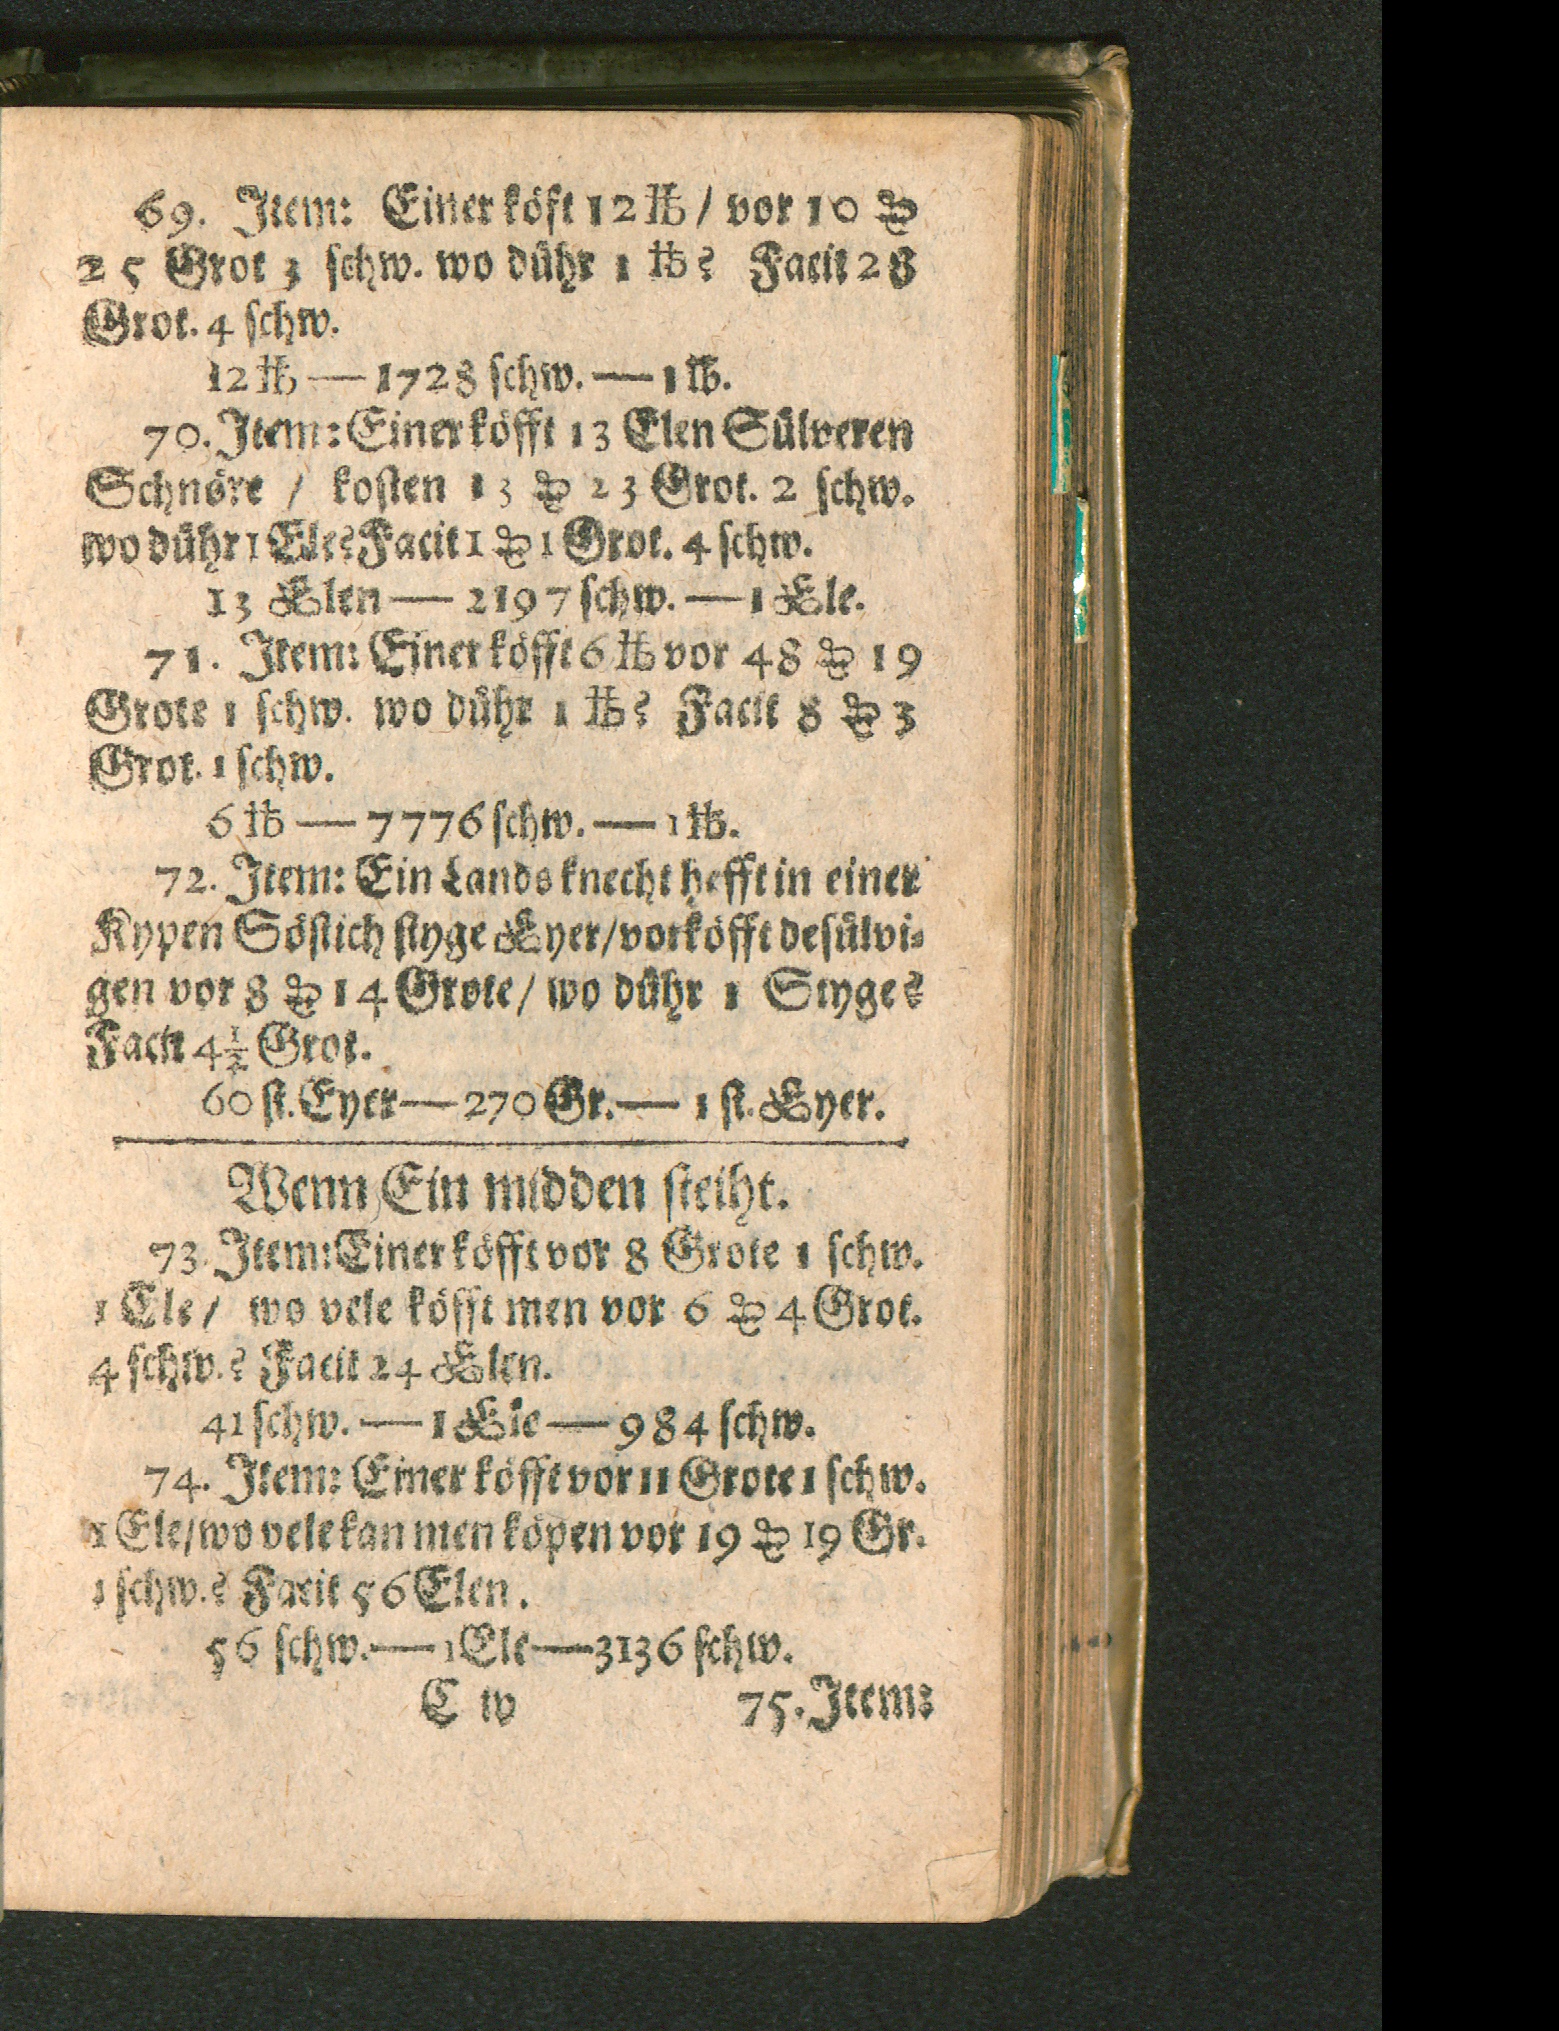 69. Item: Einer köft 12 ℔ / vor 10 ꝛ︁
25 Grot 3 schw. wo dühr 1 ℔? Facit 28
Grot. 4 schw.
12 ℔ — 1728 schw. — 1 ℔.
70. Item: Einer köfft 13 Elen Sülveren
Schnöre / kosten 13 23 Grot. 2 schw.
wo dühr 1 Ele? Facit 1 1 Grot. 4 schw.
13 Elen — 2197 schw. — 1 Ele.
71. Item: Einer köfft 6 ℔ vor 48 19
Grote 1 schw. wo dühr 1 ℔? Facit 8 3
Grot. 1 schw.
6 ℔ — 7776 schw. — 1 ℔.
72. Item: Ein Landsknecht hefft in einer
Kypen Söstich styge Eyer/vorköfft desülvi⸗
gen vor 8 14 Grote/ wo dühr 1 Styge?
Facit 4 1/2 Grot.
60 st. Eyer — 270 Gr. — 1 st. Eyer.
Wenn Ein midden steiht.
73. Item: Einer köfft vor 8 Grote 1 schw.
1 Ele/ wo vele köfft men vor 6 4 Grot.
4 schw.? Facit 24 Elen.
41 schw. — 1 Ele — 984 schw.
74. Item: Einer köfft vor 11 Grote 1 schw.
1 Ele/wo vele kan men köpen vor 19 19 Gr.
1 schw.? Facit 56 Elen.
56 schw. — 1 Ele — 3136 schw.
C w 75. Item: